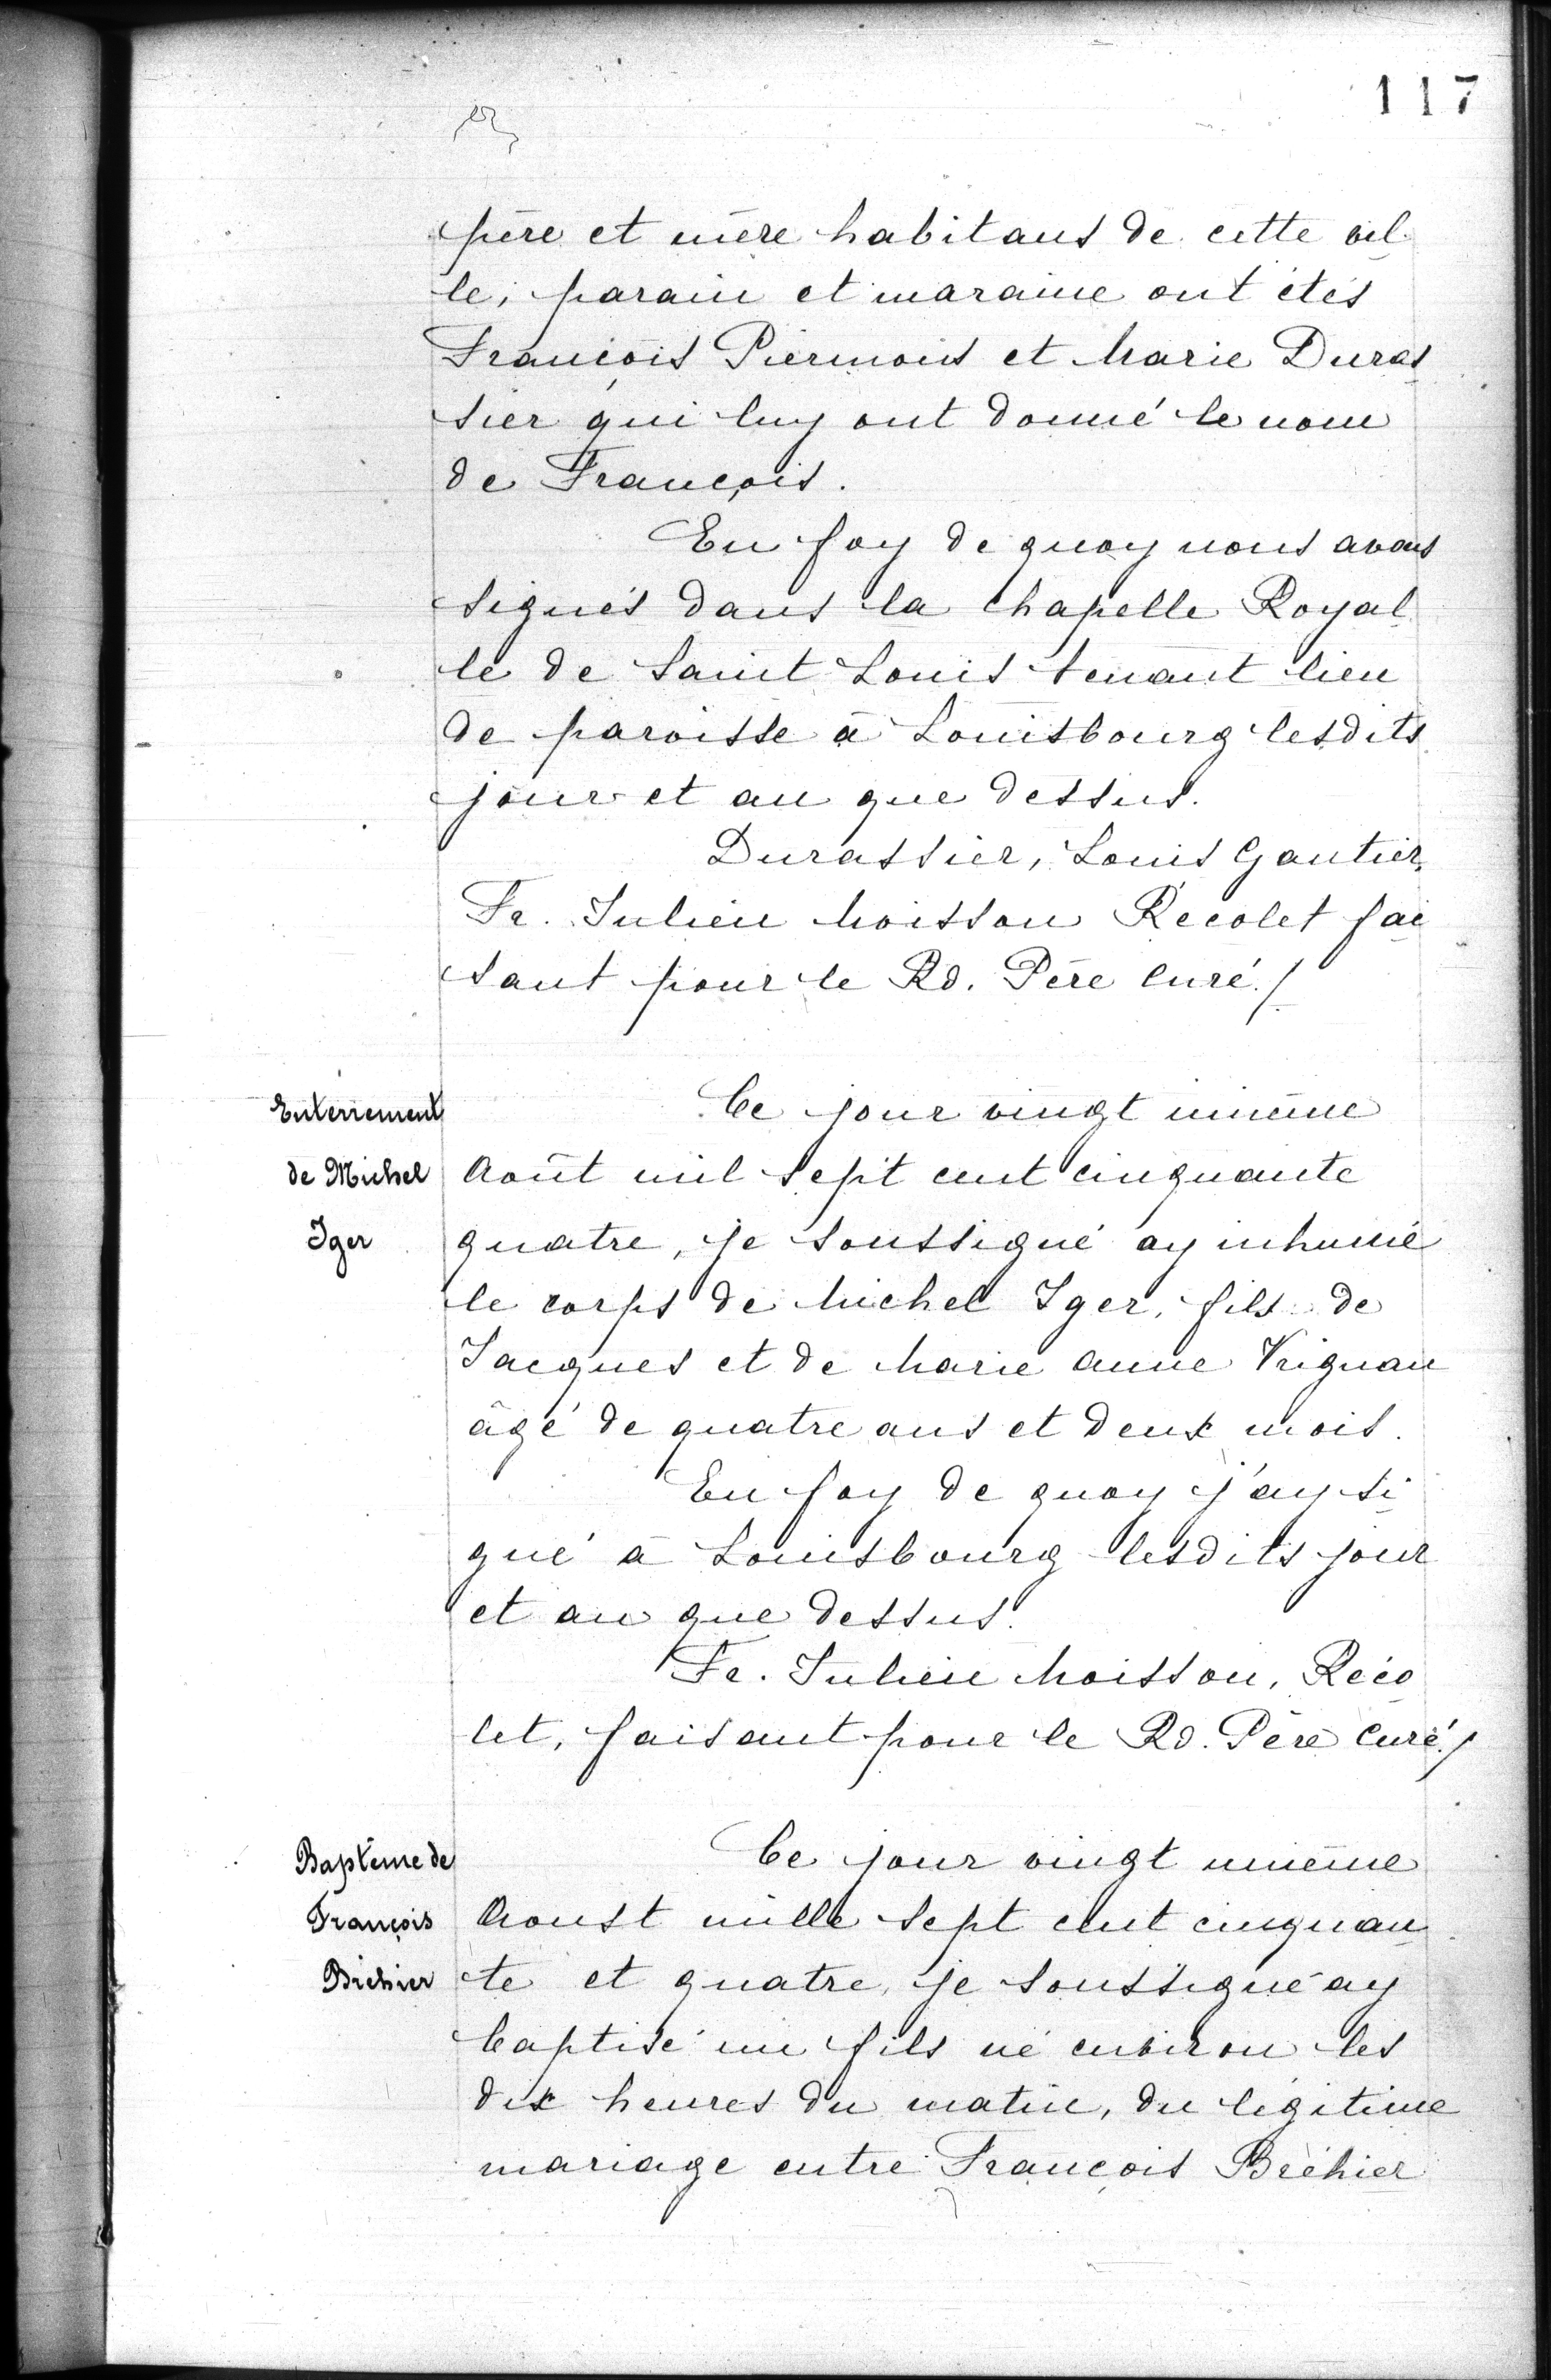 117
père et mère habitans de cette vil
le, parain et maraine ont étés
François Piermons et Marie Duras
sier qui luy ont donné le nom
de François.
En foy de quoy nous avons
signés dans la chapelle Royal
le de Saint Louis tenant lieu
de paroisse à Louisbourg lesdits
jour et an que dessus.
Durassier, Louis Gautier,
Fr. Julien Moisson Récolet fai
sant pour le Rd. Père Curé./
Enterrement
de Michel
Iger
Ce jour vingt unième
Août mil sept cent cinquante
quatre, je soussigné ay inhumé
le corps de Michel Iger, fils de
Jacques et de Marie Anne Vrignau
âgé de quatre ans et deux mois.
En foy de quoy j'ay si
gné à Louisbourg lesdits jour
et an que dessus.
Fr. Julien Moisson, Réco
let, faisant pour le Rd. Père Curé./
Baptême de
François
Bréhier
Ce jour vingt unième
Aoust mille sept cent cinquan
te et quatre, je soussigné ay
baptisé un fils né environ les
dix heures du matin, du légitime
mariage entre François Bréhier